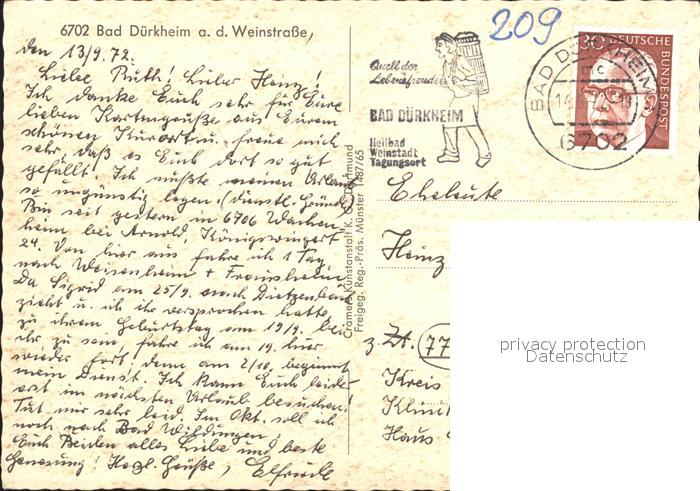 6702 Bad Dürkheim a. d. Weinstraße,
den 13/9.72.
Liebe Ruth! Lieber Heinz!
Ich danke Euch sehr für Eure
lieben Kartengrüße aus Eurem
schönen Kurort u. freue mich
sehr, daß es Euch dort so gut
gefällt. Ich mußte meinen Urlaub
so ungünstig legen. (dienstl. Gründe)
Bin seit gestern in 6706 Wachen-
heim bei Arnold, Königswingert
24. Von hier aus fahre ich 1 Tag
nach Weisenheim + Freinsheim.
Da Sigrid am 25/9. nach Dietzenbach
zieht u. ich ihr versprochen hatte,
zu ihrem Geburtstag am 19/9. bei
ihr zu sein, fahre ich am 19. hier
wieder fort, denn am 2/10. beginnt
mein Dienst. Ich kann Euch leider
erst im nächsten Urlaub besuchen!
Tut mir sehr leid. Im Okt. soll ich
noch nach Bad Wildungen.
Euch Beiden alles Liebe und beste
Genesung! Herzl. Grüße, Elfriede
Cramers Kunstanstalt K. Dortmund
Freigeg. Reg.-Präs. Münster 1487/65
209
Quell der
Lebensfreude
BAD DÜRKHEIM
Heilbad
Weinstadt
Tagungsort
BAD DÜRKHEIM
mc
6702
30 DEUTSCHE
BUNDESPOST
Eheleute
Heinz
z. Zt. 77
Kreis
Klini
Haus
privacy protection
Datenschutz